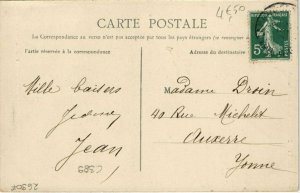 4€50
CARTE POSTALE
La Correspondance au verso n'est pas acceptée par tous les pays étrangers (se renseigner
Partie réservée à la correspondance
Adresse du destinataire
5c
Mille baisers
Jean
Madame Droin
40 Rue Michelet
Auxerre
Yonne